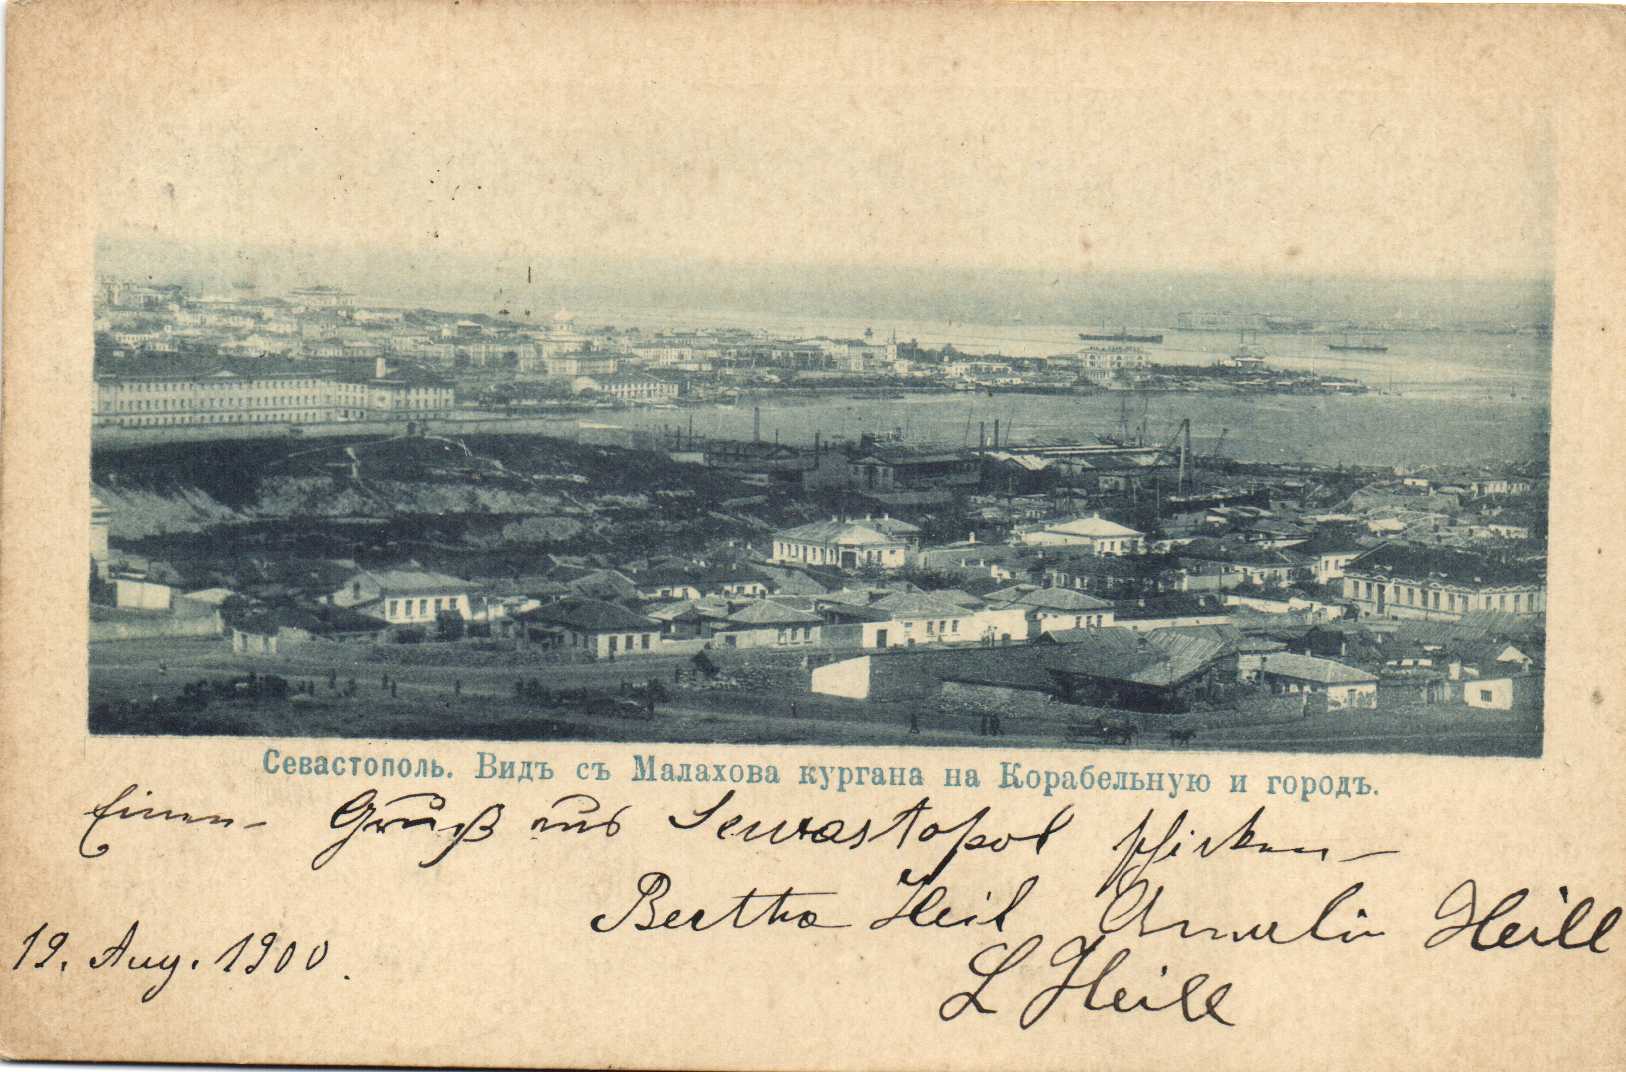 Севастополь. Видъ съ Малахова кургана на Корабельную и городъ.
Einen Gruß aus Sewastopol schicken
Bertha Heil Amalie Heill
L Heill
19. Aug. 1900.